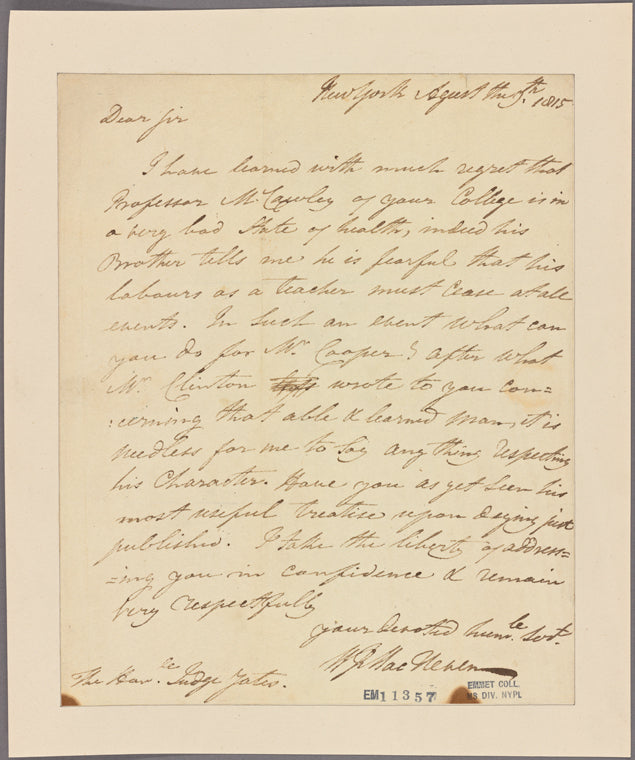 New York Agust the 9.th 1815
Dear Sir
I have learned with much regret that
Professor McCawley of your College is in
a very bad State of health, indeed his
Brother tells me he is fearful that his
labours as a teacher must cease at all
events. In such an event what can
you do for Mr. Cooper? after what
Mr. Clinton wrote to you con=
:cerning that able & learned man, it is
needless for me to Say any thing respecting
his Character. Have you as yet Seen his
most useful treatise upon dying just
published. I take the liberty of address=
=ing you in confidence & remain
Very respectfully
your devoted humle. Servt.
Wm MacNeven
The Honle. Judge Yates.
EM11357
EMMET COLL.
MS DIV. NYPL